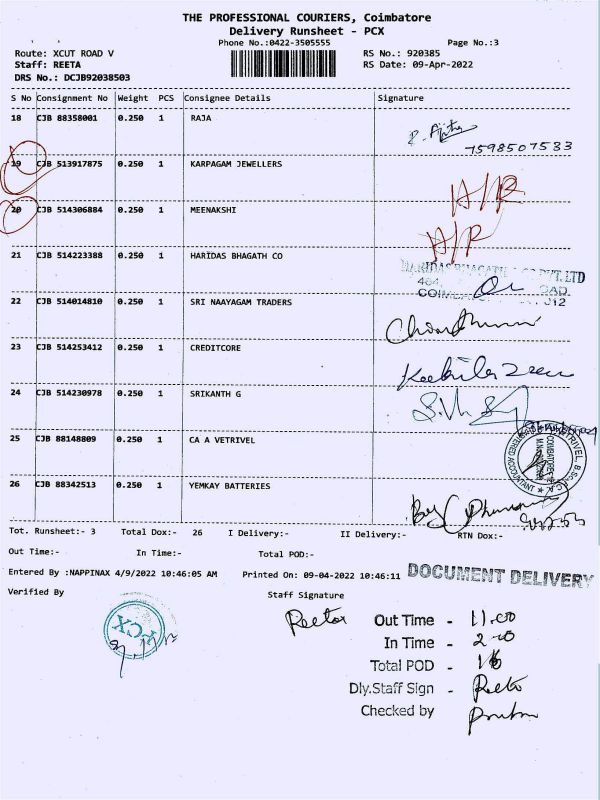 THE PROFESSIONAL COURIERS, Coimbatore
Delivery Runsheet - PCX
Phone No.:0422-3505555 Page No.:3
Route: XCUT ROAD V RS No.: 920385
Staff: REETA RS Date: 09-Apr-2022
DRS No.: DCJB92038503
S No Consignment No Weight PCS Consignee Details Signature
18 CJB 88358001 0.250 1 RAJA
7598507533
19 CJB 513917875 0.250 1 KARPAGAM JEWELLERS
20 CJB 514306884 0.250 1 MEENAKSHI
21 CJB 514223388 0.250 1 HARIDAS BHAGATH CO
HARIDAS BHAGATH PVT. LTD
22 CJB 514014810 0.250 1 SRI NAAYAGAM TRADERS
23 CJB 514253412 0.250 1 CREDITCORE
24 CJB 514230978 0.250 1 SRIKANTH G
25 CJB 88148809 0.250 1 CA A VETRIVEL
26 CJB 88342513 0.250 1 YEMKAY BATTERIES
Tot. Runsheet:- 3 Total Dox:- 26 I Delivery:- II Delivery:- RTN Dox:-
Out Time:- In Time:- Total POD:-
Entered By :NAPPINAX 4/9/2022 10:46:05 AM Printed On: 09-04-2022 10:46:11 DOCUMENT DELIVERY
Verified By Staff Signature
Reeta Out Time - 11.00
In Time - 2.00
Total POD - 16
Dly.Staff Sign - Reeta
Checked by